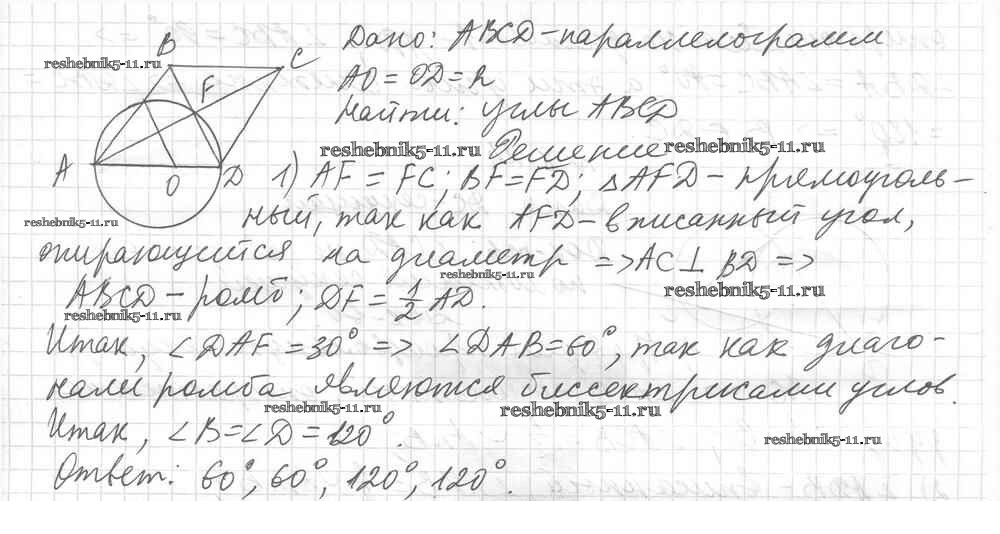 B
reshebnik5-11.ru
C
F
A
O
D
Дано: ABCD-параллелограмм
AO = OD = R
Найти: углы ABCD
reshebnik5-11.ru Решение reshebnik5-11.ru
1) AF = FC; BF = FD; △AFD - прямоуголь-
reshebnik5-11.ru
ный, так как AFD - вписанный угол,
опирающийся на диаметр => AC ⊥ BD =>
reshebnik5-11.ru
reshebnik5-11.ru
ABCD - ромб; DF = 1/2 AD.
reshebnik5-11.ru
Итак, ∠DAF = 30° => ∠DAB = 60°, так как диаго-
нали ромба являются биссектрисами углов.
reshebnik5-11.ru reshebnik5-11.ru
Итак, ∠B = ∠D = 120°.
reshebnik5-11.ru
Ответ: 60°, 60°, 120°, 120°.